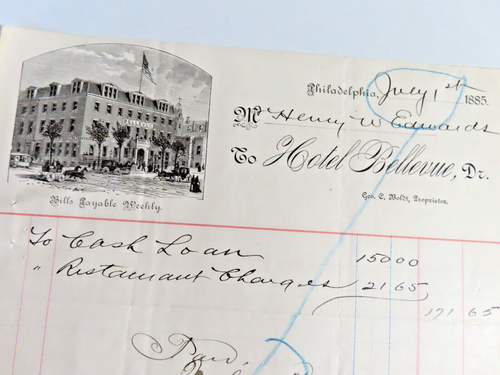 BELLEVUE
Bills Payable Weekly.
Philadelphia, July 1st 1885.
Mr Henry W Edwards
To Hotel Bellevue, Dr.
Geo. C. Boldt, Proprietor.
To Cash Loan 150 00
" Restaurant Charges 21 65
171 65
Paid